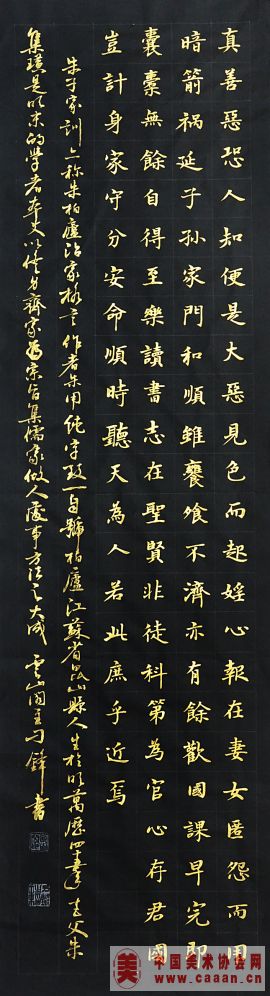 真善惡恐人知便是大惡見色而起婬心報在妻女匿怨而用
暗箭祸延子孫家門和順雖饔飧不濟亦有餘歡國課早完即
囊橐無餘自得至樂讀書志在聖賢非徒科第為官心存君國
豈計身家守分安命順時聽天為人若此庶乎近焉
朱子家訓亦称朱柏廬治家格言作者朱用純字致一自號柏廬江蘇省昆山縣人生於明萬歷四其父朱
集璜是明末的學者本文以修身齊家為宗旨集儒家做人處事方法之大成 雲山閣主刁鋒書
美 中国美术协会网
www.caaan.cn